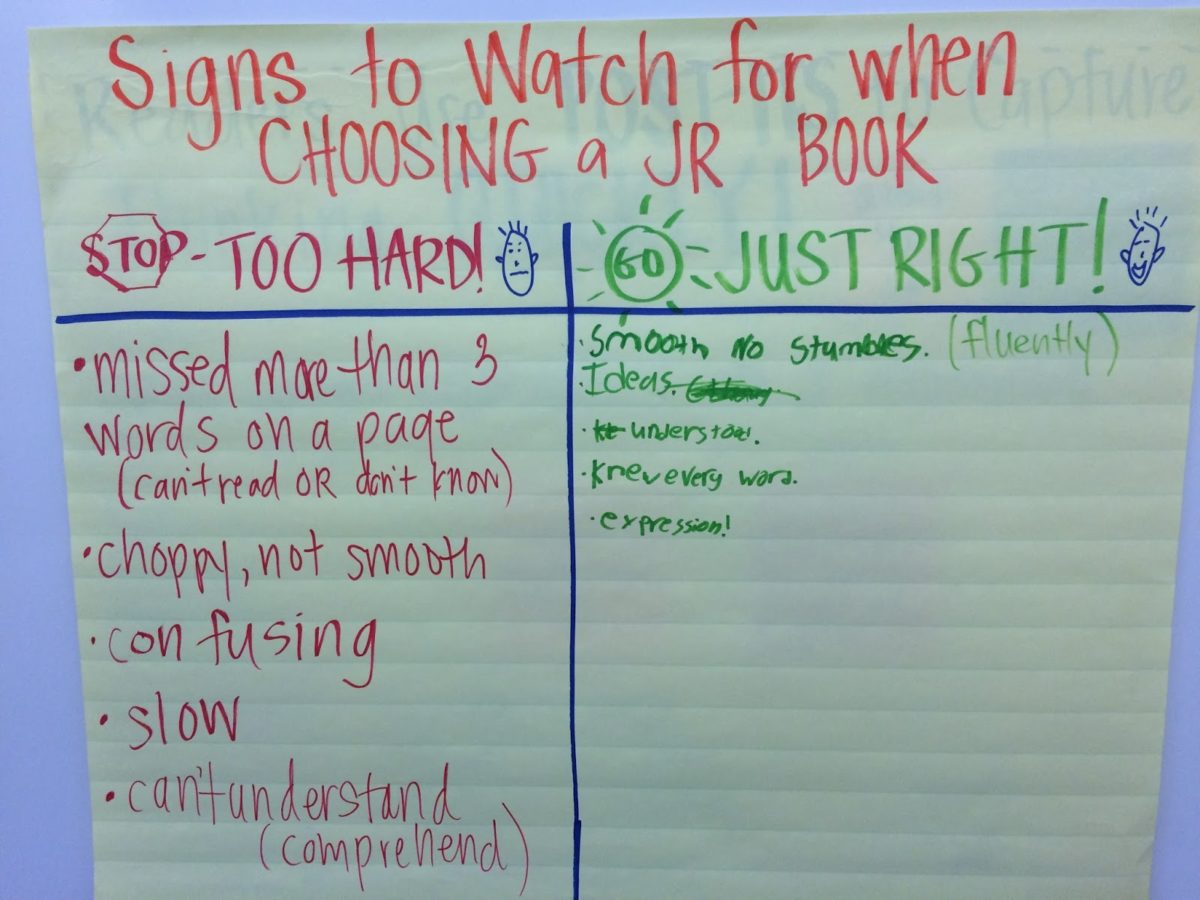 Signs to Watch for when
CHOOSING a JR BOOK
STOP - TOO HARD!
• missed more than 3
words on a page
(can't read OR don't know)
• choppy, not smooth
• confusing
• slow
• can't understand
(comprehend)
GO JUST RIGHT!
• Smooth no stumbles. (fluently)
• Ideas.
• understood.
• Knew every word.
• expression!